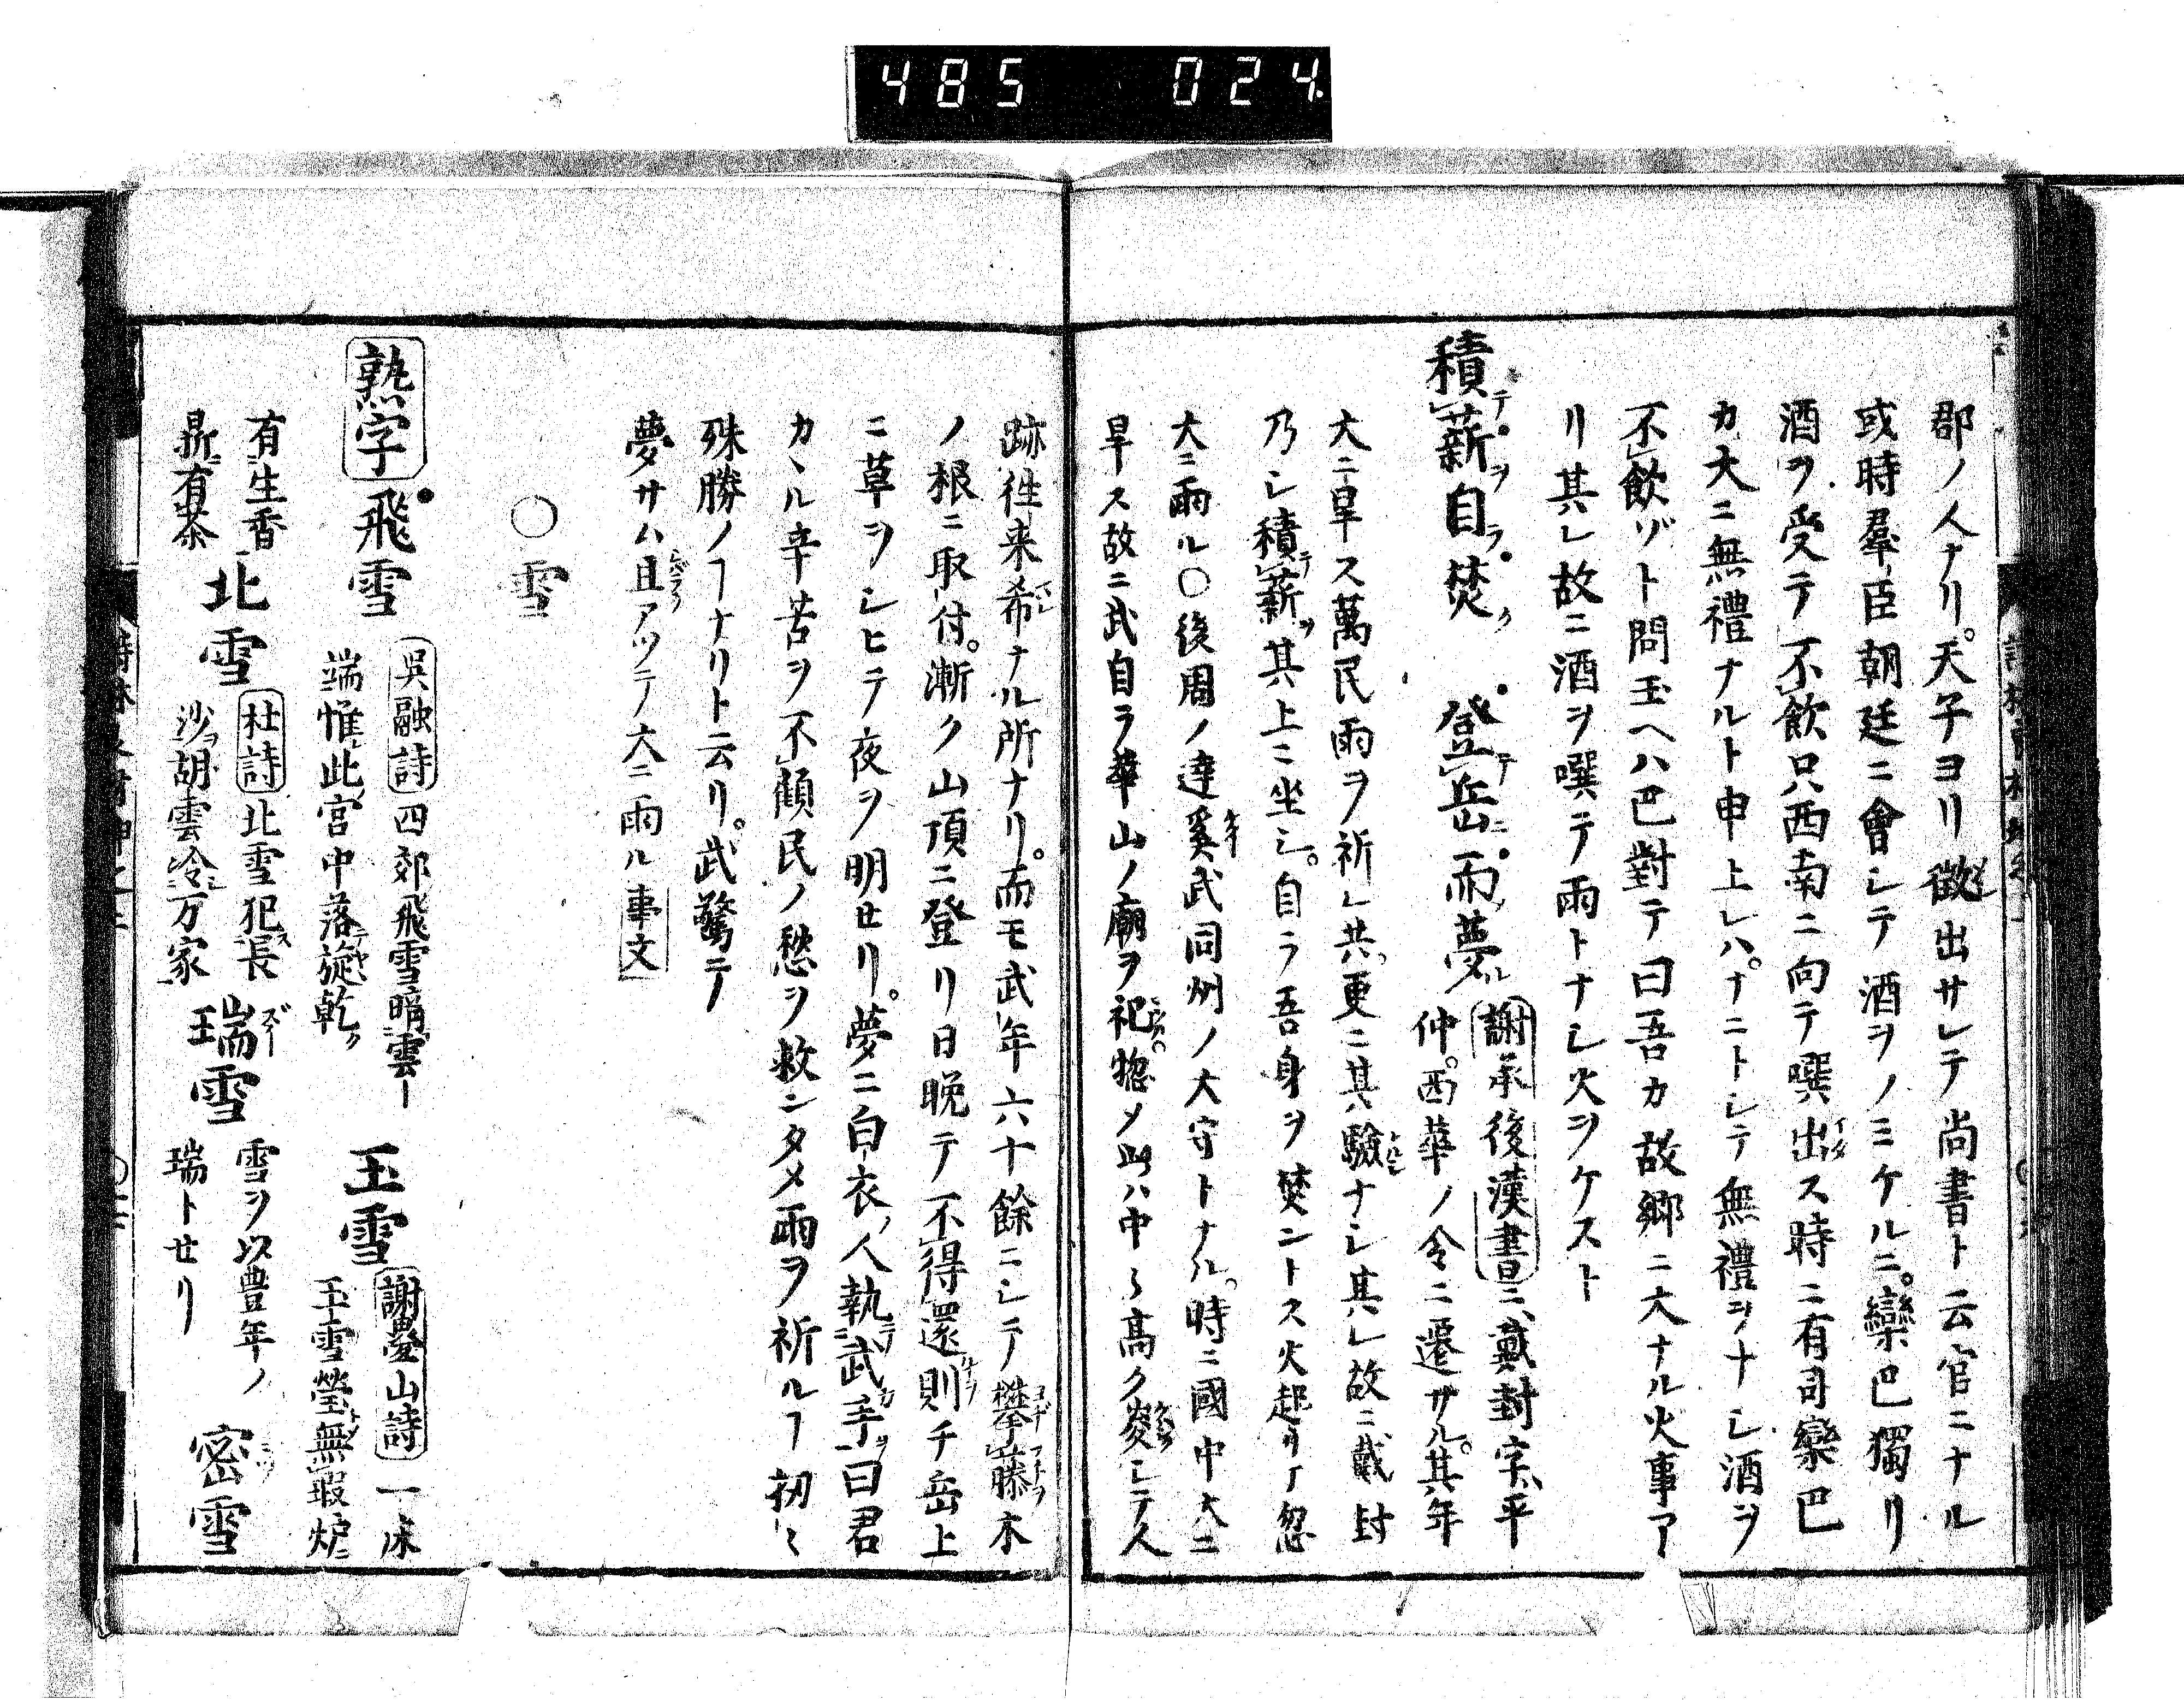 485 024
郡ノ人ナリ。天子ヨリ徴出サレテ尚書ト云官ニナル
或時羣臣朝廷ニ會シテ酒ヲノミケルニ。欒巴獨リ
酒ヲ受テ不飲只西南ニ向テ噀出ス時ニ有司欒巴
カ大ニ無禮ナルト申上レハ。ナニトシテ無禮ヲナシ酒ヲ
不飲ゾト問玉ヘハ巴對テ曰吾カ故郷ニ大ナル火事ア
リ其レ故ニ酒ヲ噀テ雨トナシ火ヲケスト
積テ薪ヲ自ラ焚ク 登テ岳ニ而夢ル 謝承後漢書曰ニ戴封字平
仲。西華ノ令ニ遷サル。其年
大ニ旱ス萬民雨ヲ祈レ共更ニ其驗ナシ其レ故ニ戴封
乃シ積テ薪ヲ其上ニ坐シ。自ラ吾身ヲ焚ントス火起リ忽
大ニ雨ル〇後周ノ達奚武同州ノ大守トナル。時ニ國中大ニ
旱ス故ニ武自ラ華山ノ廟ヲ祀。惣メ此ハ中々高ク峻シテ人
跡徃来希ナル所ナリ。而モ武年六十餘ニシテ攀藤木
ノ根ニ取付。漸ク山頂ニ登リ日晩テ不得還則チ岳上
ニ草ヲシヒテ夜ヲ明セリ。夢ニ白衣ノ人執テ武カ手ヲ曰君
カヽル辛苦ヲ不顧民ノ愁ヲ救ンタメ雨ヲ祈ルヿ初〻
殊勝ノヿナリト云リ。武驚テ
夢サム且アツテ大ニ雨ル 事文
〇雪
熟字 飛雪 呉融詩 四郊飛雪暗雲ー
端惟此宮中落旋乾ク 玉雪 謝疊山詩 一床
玉雪瑩無瑕炉ニ
有生香
鼎有茶 北雪 杜詩 北雪犯長
沙胡雲冷万家 瑞雪 雪ヲ以豊年ノ
瑞トセリ 密雪